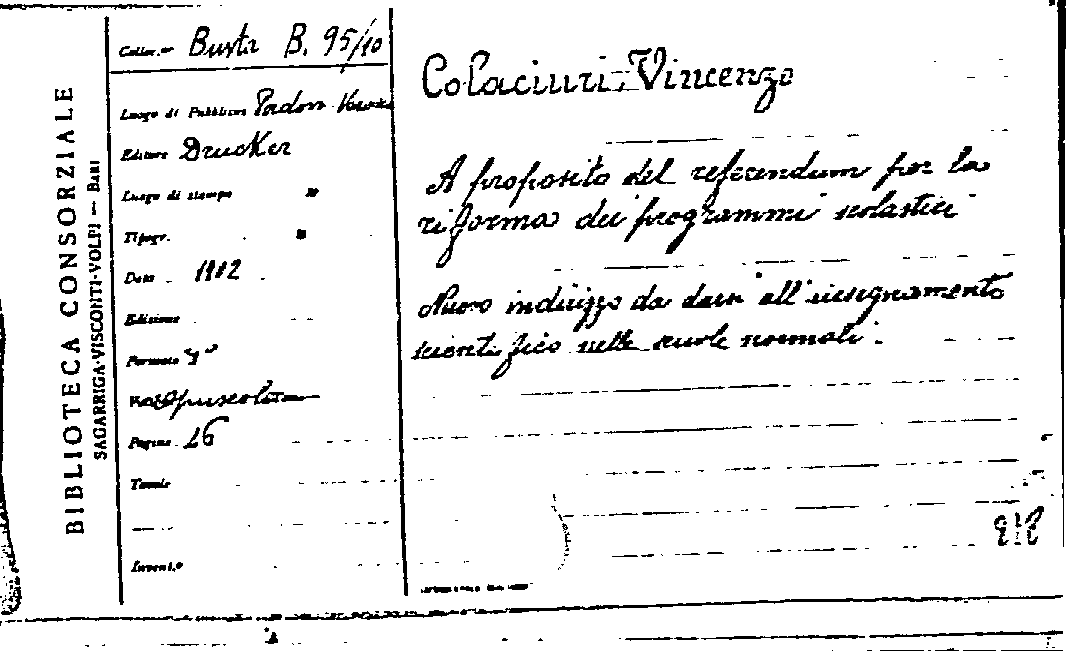 BIBLIOTECA CONSORZIALE
SAGARRIGA-VISCONTI-VOLPI — BARI
Busta B. 95/10
Luogo di Pubblicaz Padova
Editore Drucker
Luogo di stampa "
Tipogr. "
Data 1912
Edizione
Formato
Opuscolo
Pagine 26
Tomolo
Invent.o
Colaciuri, Vincenzo
A proposito del referendum per la
riforma dei programmi scolastici
Nuovo indirizzo da dare all'insegnamento
scientifico nelle scuole normali.